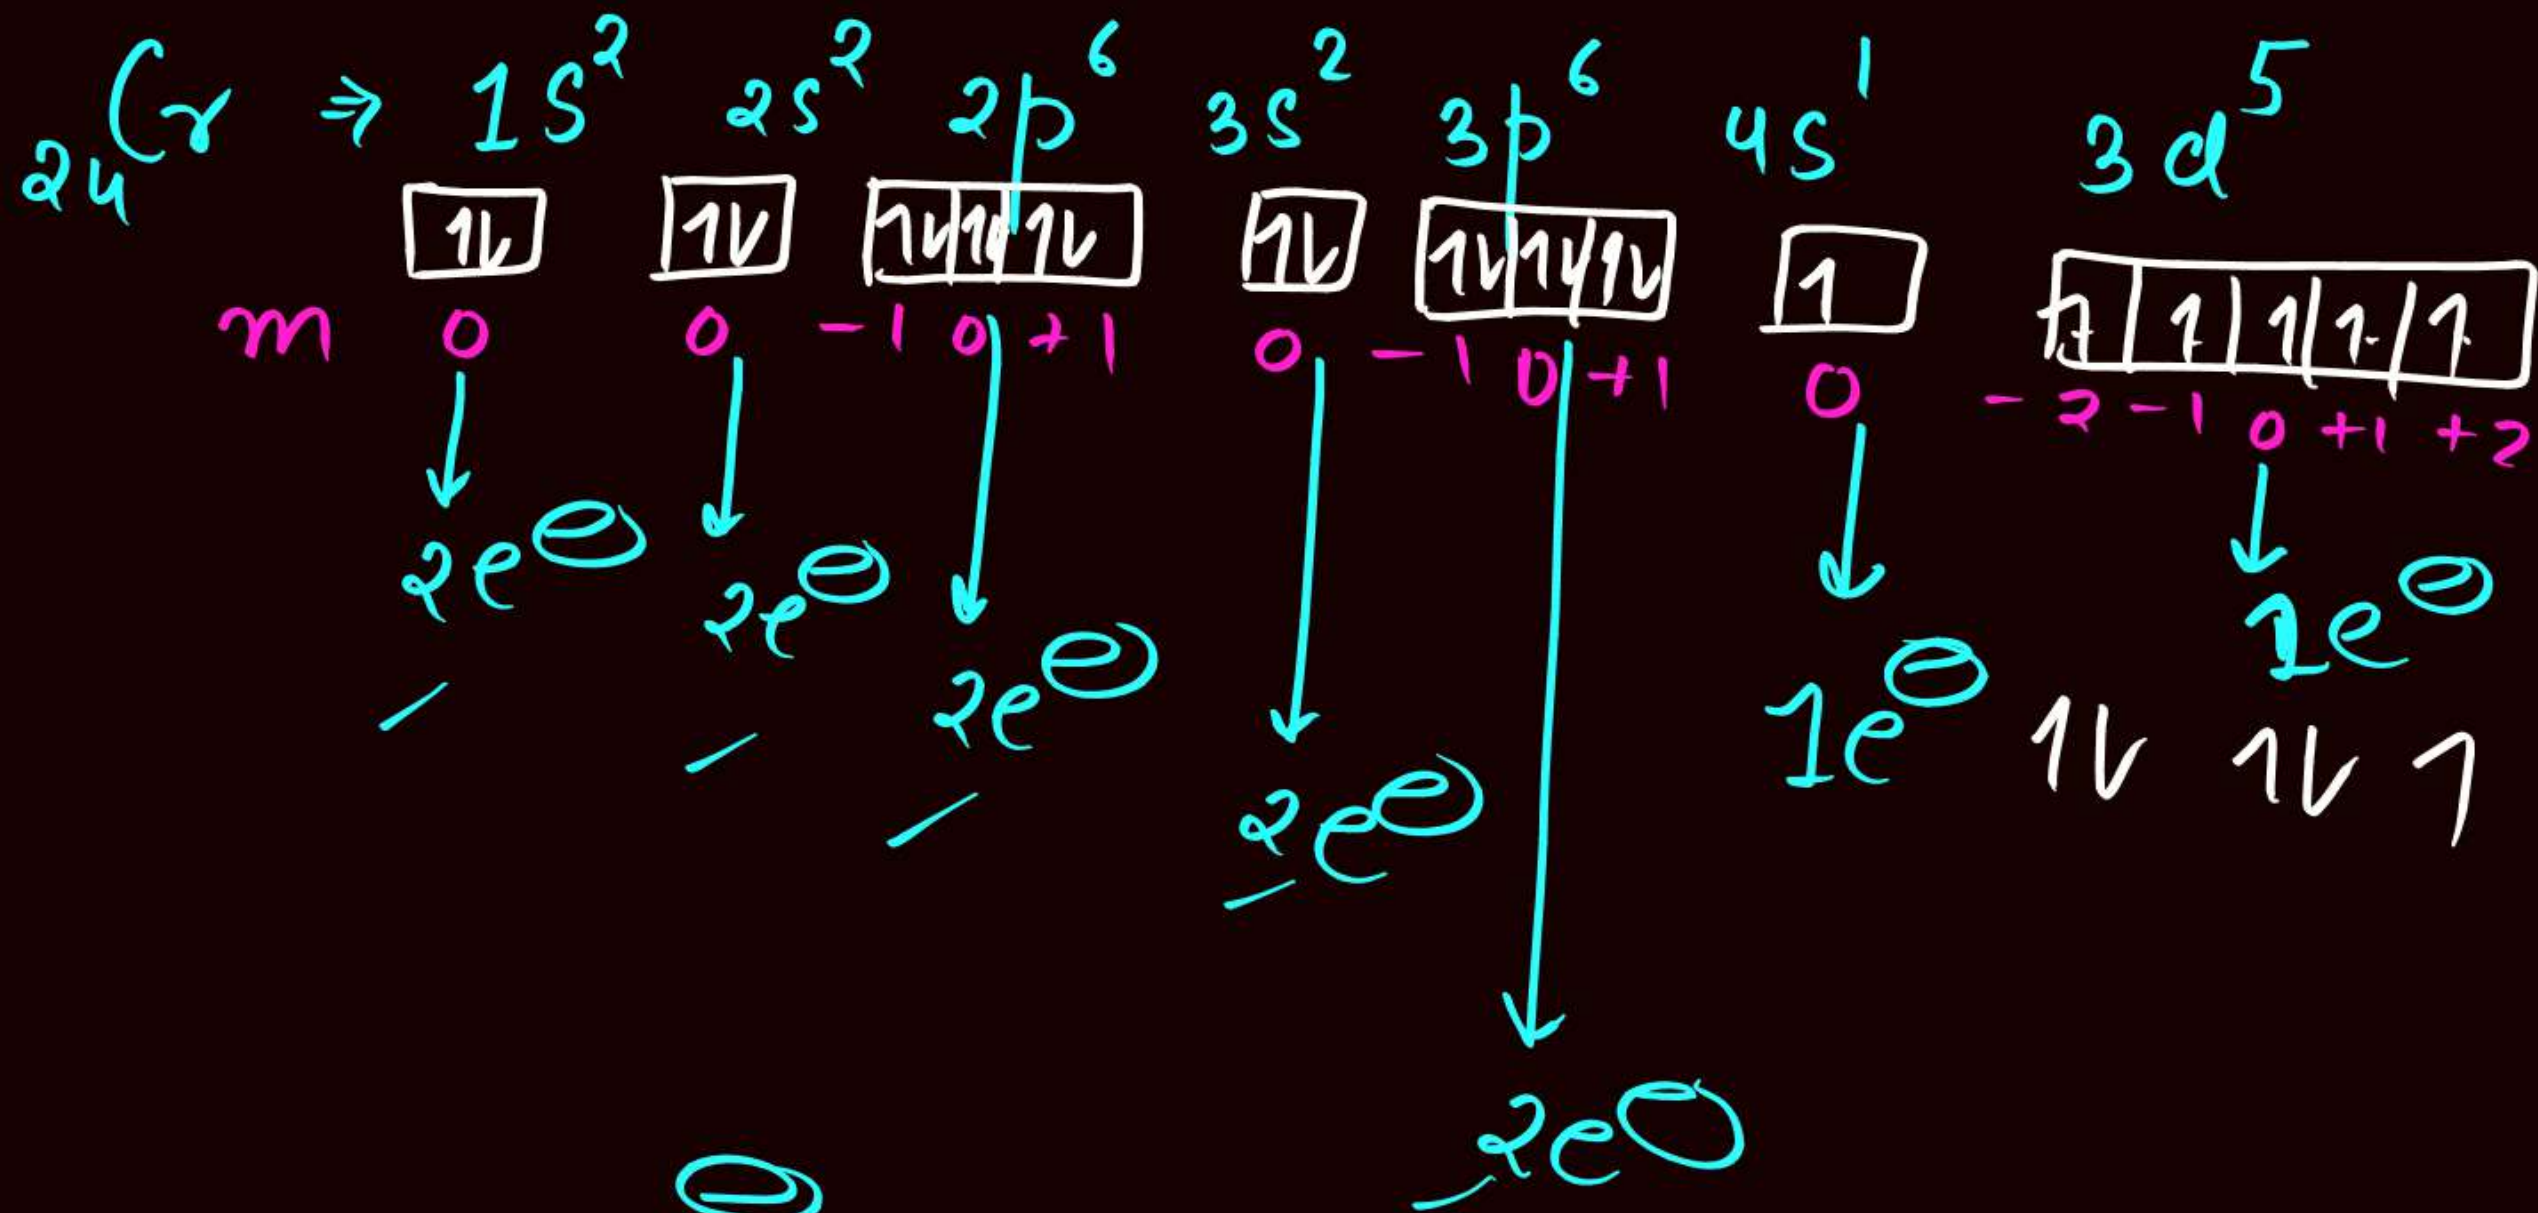 ₂₄Cr ⇒ 1s² 2s² 2p⁶ 3s² 3p⁶ 4s¹ 3d⁵
1l 1l 1l 1l 1l 1l 1l 1l 1l 1 1 1 1 1 1
m 0 0 -1 0 +1 0 -1 0 +1 0 -2 -1 0 +1 +2
2e⊖ 2e⊖ 2e⊖ 2e⊖ 1e⊖ 1e⊖
1l 1l 1
2e⊖
⊖